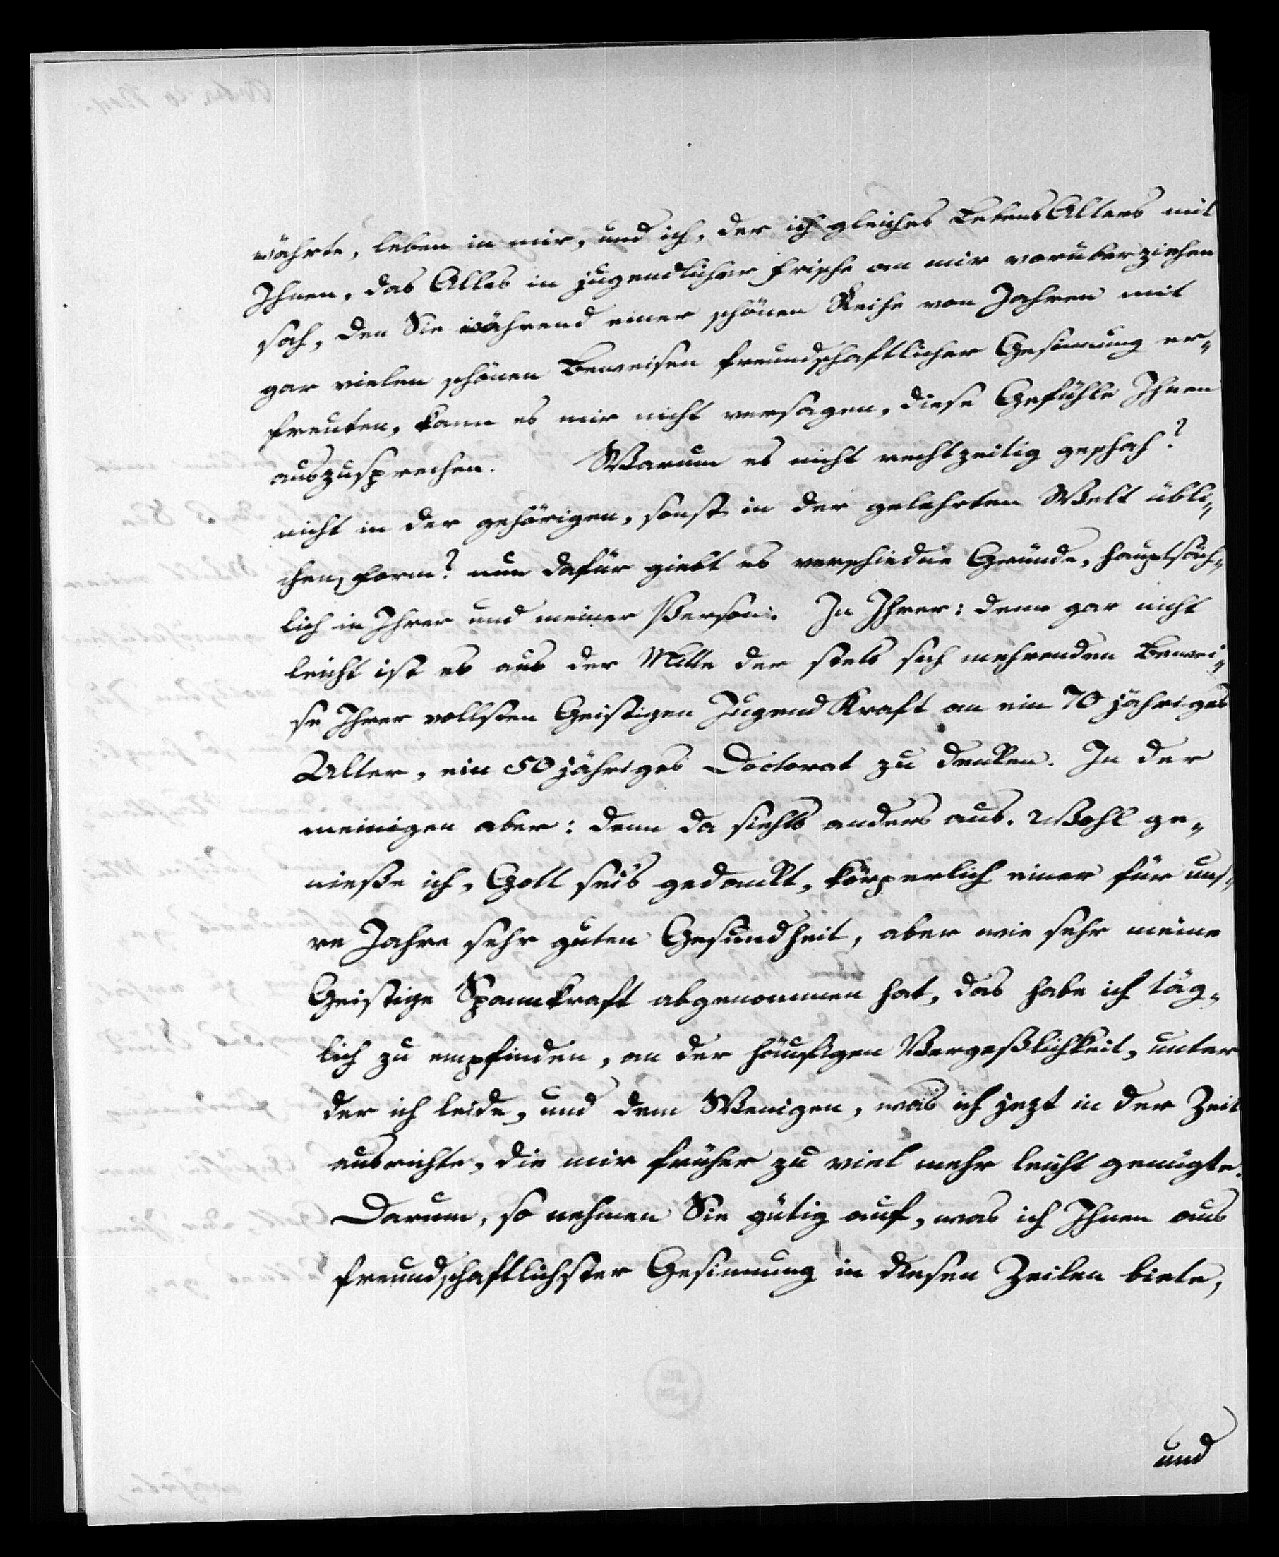 währte, leben in mir, und ich, der ich gleiches LebensAlters mit
Ihnen, das Alles in jugendlicher Frische an mir vorüberziehen
sah, den Sie während einer schönen Reihe von Jahren mit
gar vielen schönen Beweisen freundschaftlicher Gesinnung er-
freuten, kann es mir nicht versagen, diese Gefühle Ihnen
auszusprechen. Warum es nicht rechtzeitig geschah?
nicht in der gehörigen, sonst in der gelehrten Welt übli-
chen, Form? nun dafür giebt es verschiedne Gründe, hauptsäch-
lich in Ihrer und meiner Person. In Ihrer: denn gar nicht
leicht ist es aus der Mitte der stets sich mehrenden Bewei-
se Ihrer vollsten Geistigen Jugend Kraft an ein 70 jähriges
Alter, ein 50 jähriges Doctorat zu denken. In der
meinigen aber: denn da siehts anders aus. Wohl ge-
nieße ich, Gott seis gedankt, körperlich einer für uns-
re Jahre sehr guten Gesundheit, aber wie sehr meine
Geistige Spannkraft abgenommen hat, das habe ich täg-
lich zu empfinden, an der häufigen Vergeßlichkeit, unter
der ich leide, und dem Wenigen, was ich jezt in der Zeit
ausrichte, die mir früher zu viel mehr leicht genügte.
Darum, so nehmen Sie gütig auf, was ich Ihnen aus
freundschaftlichster Gesinnung in diesen Zeilen biete,
und